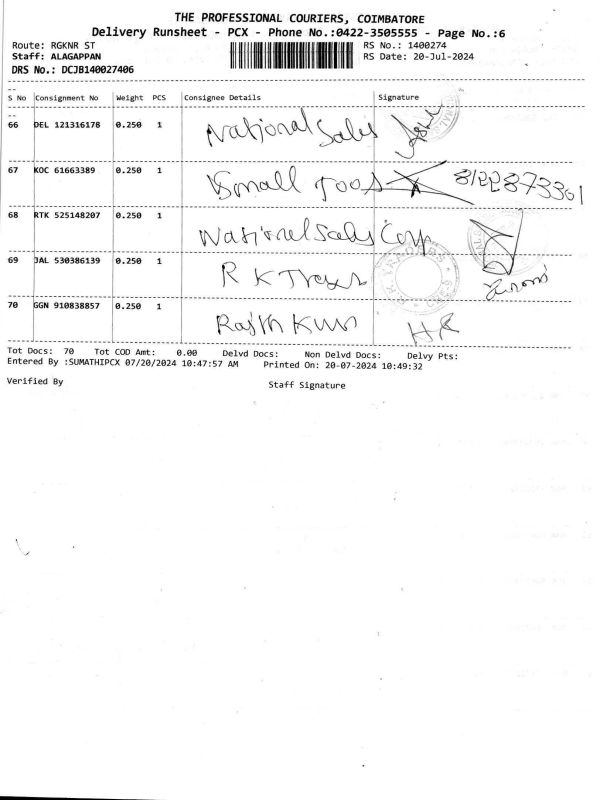 THE PROFESSIONAL COURIERS, COIMBATORE
Delivery Runsheet - PCX - Phone No.:0422-3505555 - Page No.:6
Route: RGKNR ST RS No.: 1400274
Staff: ALAGAPPAN RS Date: 20-Jul-2024
DRS No.: DCJB140027406
S No Consignment No Weight PCS Consignee Details Signature
66 DEL 121316178 0.250 1 National Sales
67 KOC 61663389 0.250 1 Small Toos 8122873301
68 RTK 525148207 0.250 1 National Sales Corp
69 JAL 530386139 0.250 1 R K
70 GGN 910838857 0.250 1
Tot Docs: 70 Tot COD Amt: 0.00 Delvd Docs: Non Delvd Docs: Delvy Pts:
Entered By :SUMATHIPCX 07/20/2024 10:47:57 AM Printed On: 20-07-2024 10:49:32
Verified By Staff Signature